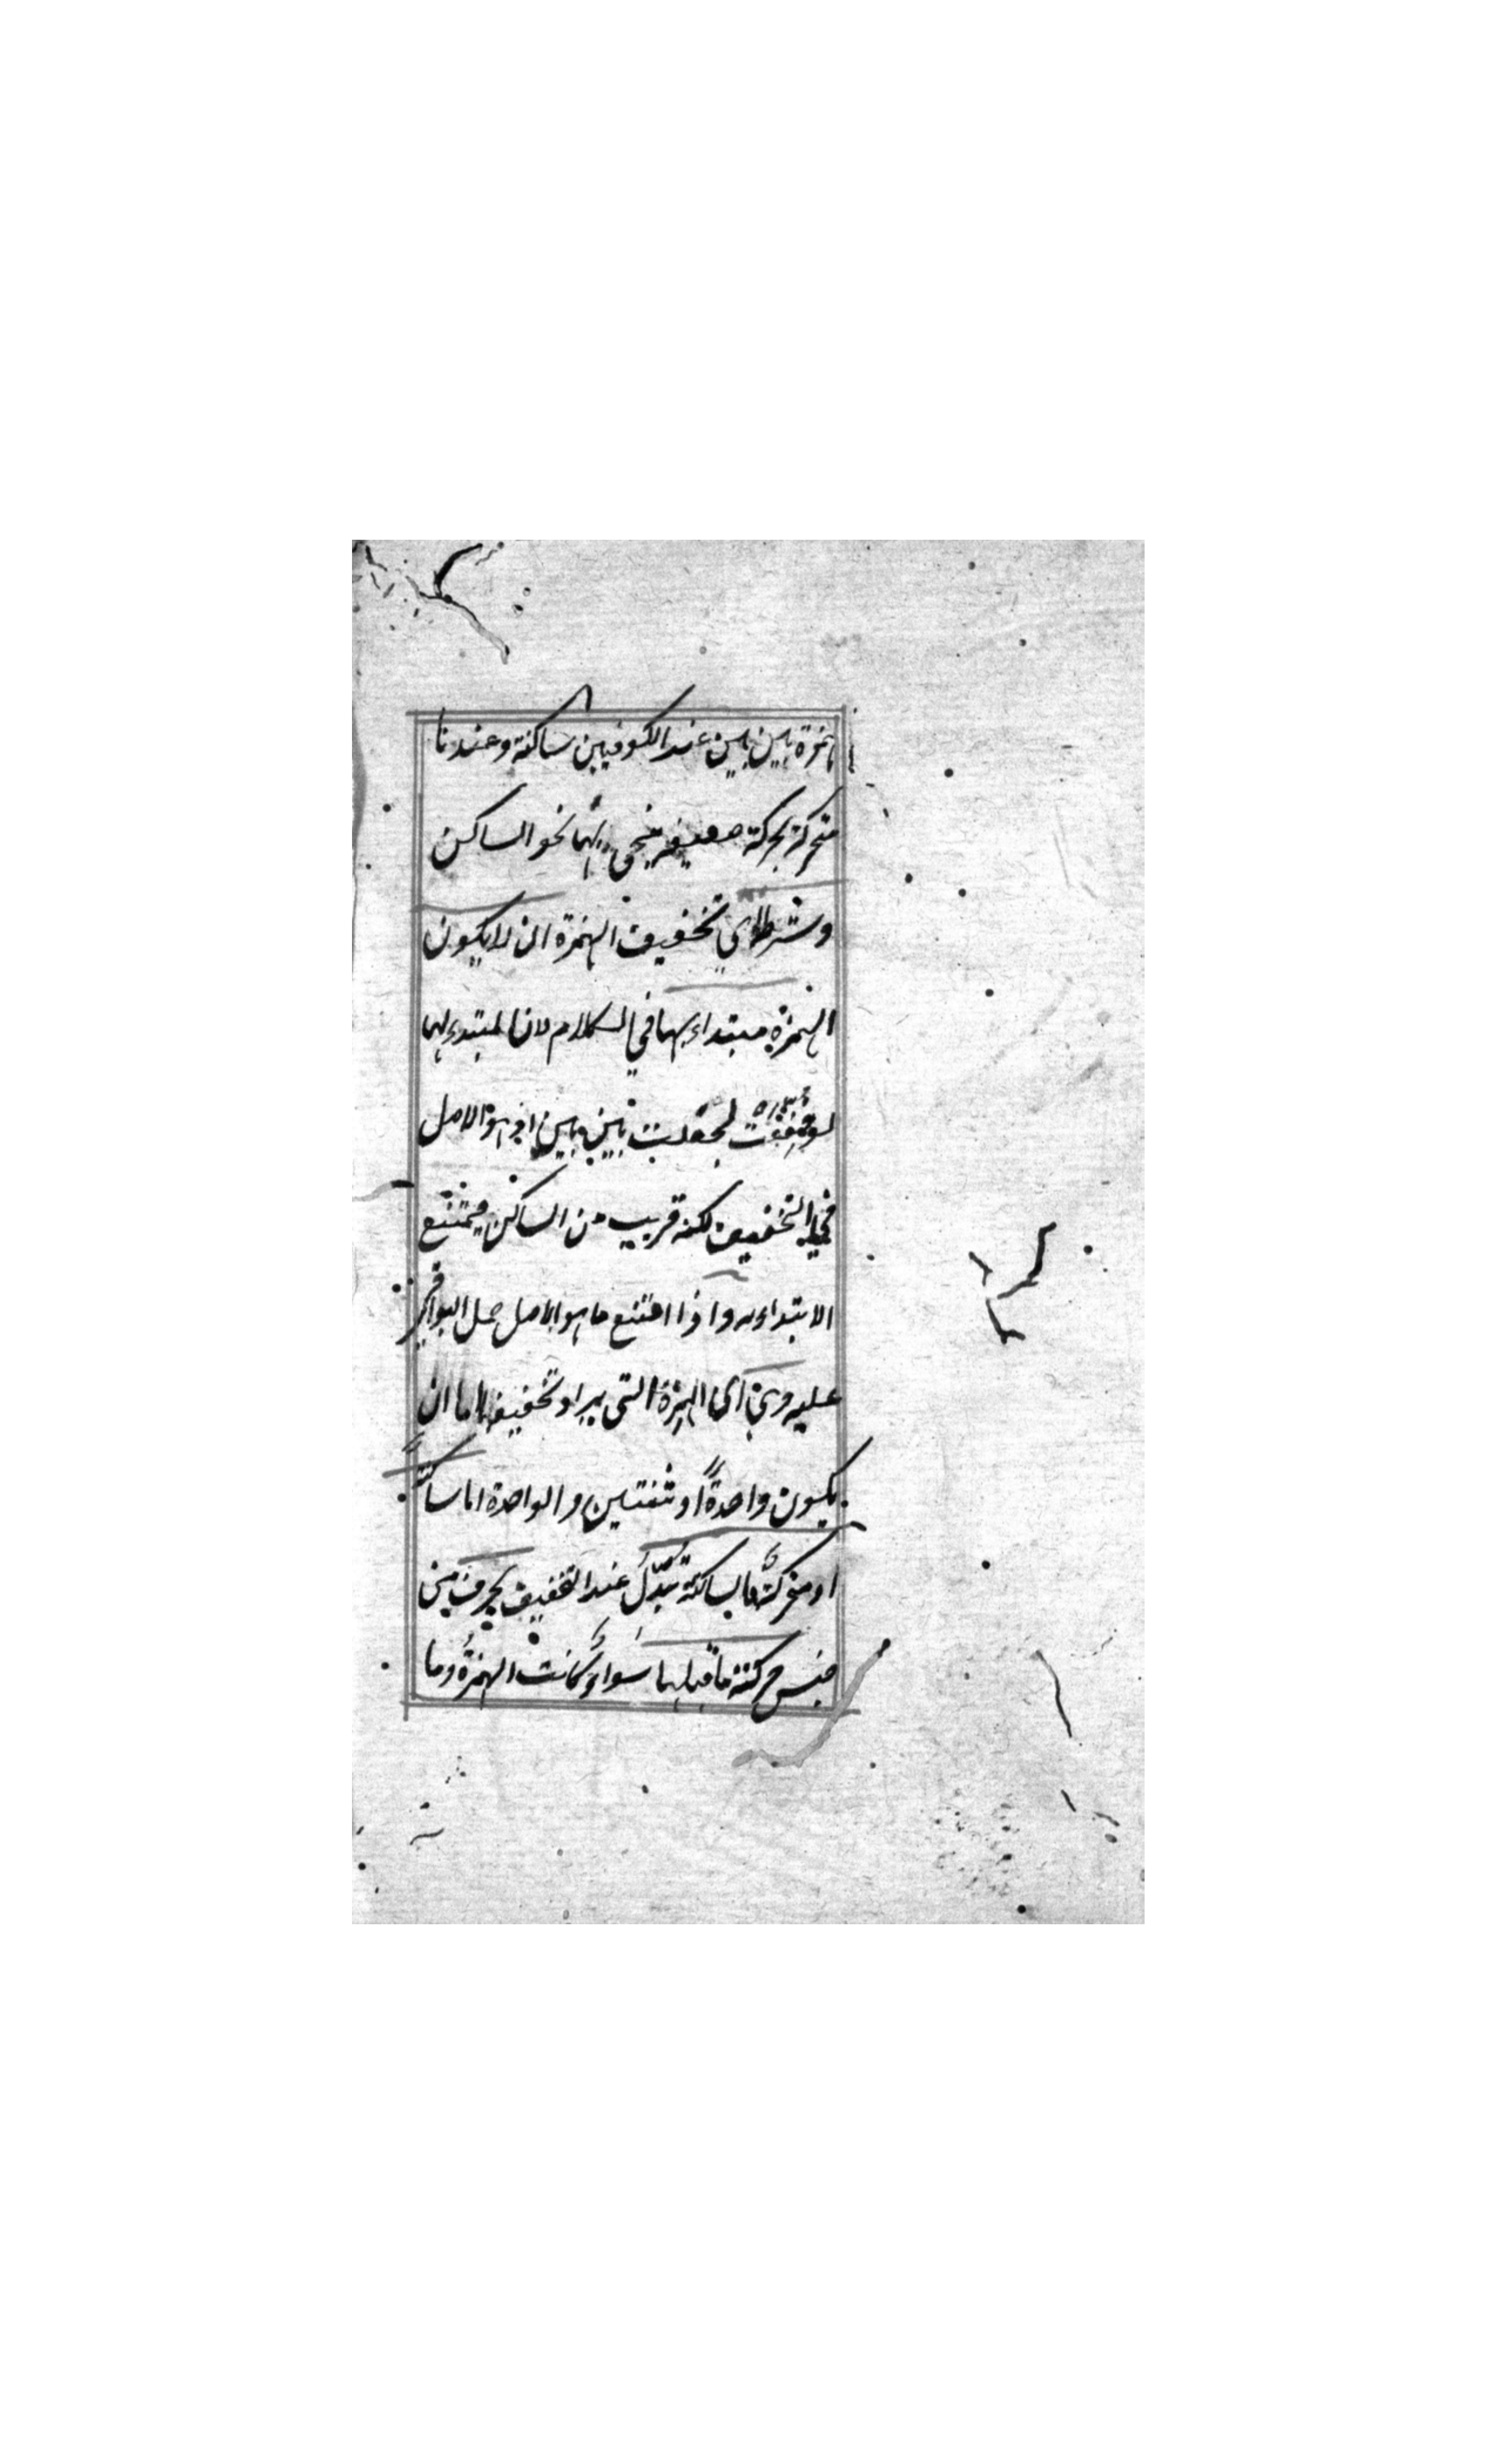 همزة بين بين عند الكوفيين ساكنة وعندنا
متحركة بحركة ضعيفة ينحى بها نحو الساكن
وشرطه اي تخفيف الهمزة ان لا يكون
الهمزة مبتداء بها في الكلام لان المبتدء بها
لو خففت لجعلت بين بين اذ هو الاصل
في التخفيف لكنه قريب من الساكن فيمتنع
الابتداء به واذا امتنع ما هو الاصل حمل البواقي
عليه وهي اى الهمزة التى يراد تخفيفها اما ان
يكون واحدةً او ثنتين والواحدة اما ساكنةً
او متحركةً فالساكنة تبدّل عند التخفيف بحرف من
جنس حركة ما قبلها سواءٌ كانت الهمزةُ وما